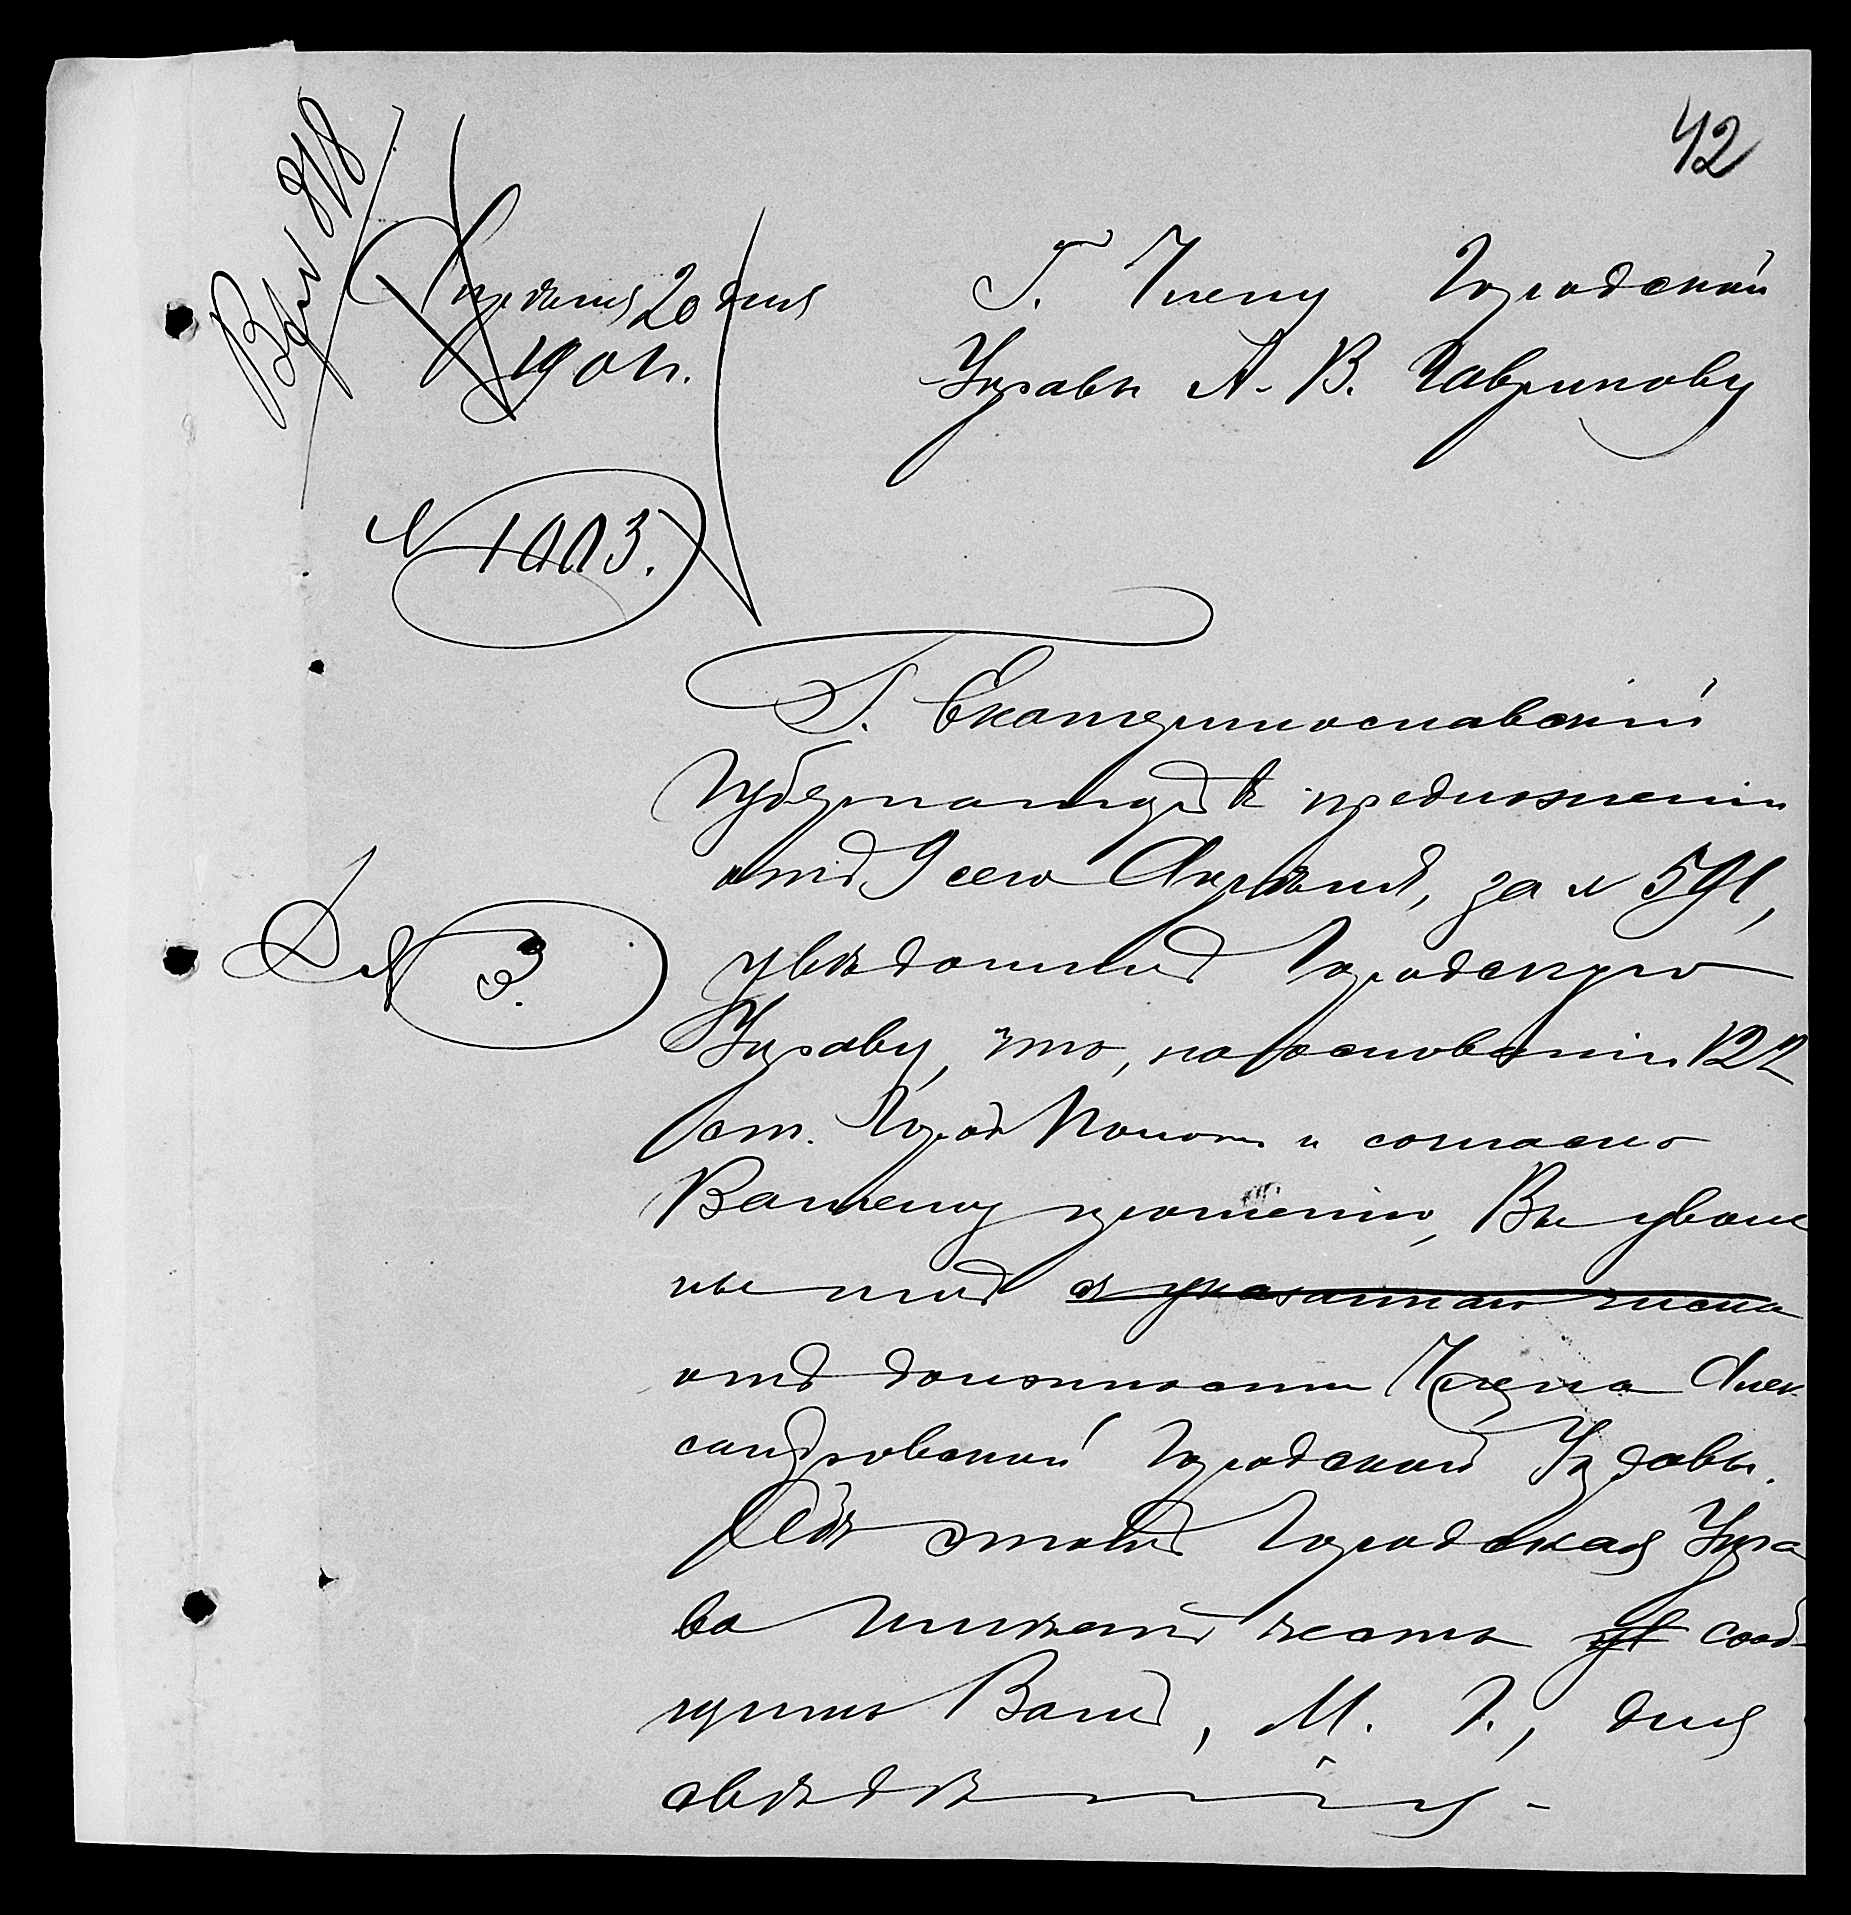 42
Вход 818
Апрѣля 20 дня
1901 г.
№ 1003.
Г. Члену Городской
Управы А. В. Гаврикову
Г. Екатеринославскій
Губернаторъ въ предложеніи
отъ 9 сего Апрѣля, за № 591,
увѣдомилъ Городскую
Управу, что, на основаніи 122
ст. Город Полож и согласно
Вашему прошенію, Вы уволе
ны имъ съ указаннаго числа
отъ должности Члена Алек-
сандровской Городской Управы.
Объ этомъ Городская Упра
ва имѣетъ честь ув сооб-
щить Вамъ, М. Г., для
свѣдѣнія.
Д № 3.